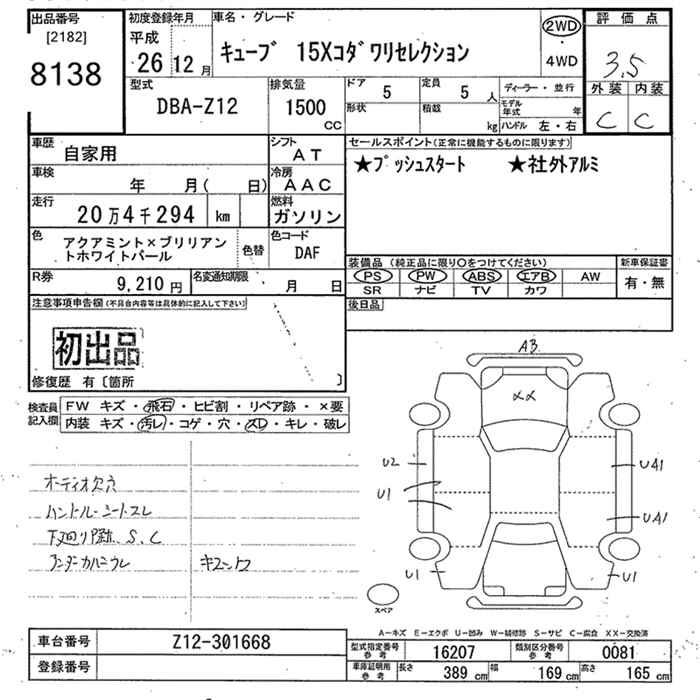 出品番号
[2182]
8138
初度登録年月
平成
26 12 月
車名・グレード
キューブ 15Xコダワリセレクション
2WD
・
4WD
評価点
3.5
外装 内装
C C
型式
DBA-Z12
排気量
1500
CC
ドア 5
形状
定員 5 人
積載 kg
ディーラー・並行
モデル年式 年
ハンドル 左・右
車歴
自家用
シフト
AT
車検
年 月( 日)
冷房
AAC
走行
20万4千294 km
燃料
ガソリン
色
アクアミント×ブリリアン
トホワイトパール
色替
色コード
DAF
R券
9,210円
名変通知期限
月 日
セールスポイント(正常に機能するものに限ります)
★プッシュスタート ★社外アルミ
装備品(純正品に限り〇をつけてください)
新車保証書
PS PW ABS エアB AW
SR ナビ TV カワ
有・無
後日品
注意事項申告欄(不具合内容等は具体的に記入して下さい)
初出品
修復歴 有〔箇所 〕
検査員
記入欄
FW キズ・飛石・ヒビ割・リペア跡・×要
内装 キズ・汚レ・コゲ・穴・スレ・キレ・破レ
オーディオ欠穴
ハンドル・シートスレ
下廻り跡、S、C
アンダーカバーウレ
A3
XX
U2
U1
UA1
UA1
U1
U1
スペア
A-キズ E-エクボ U-凹み W-補修跡 S-サビ C-腐食 XX-交換済
車台番号
Z12-301668
登録番号
型式指定番号
参考
16207
類別区分番号
参考
0081
車庫証明用
参考
長さ 389 cm
幅 169 cm
高さ 165 cm